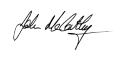 John McCarthy